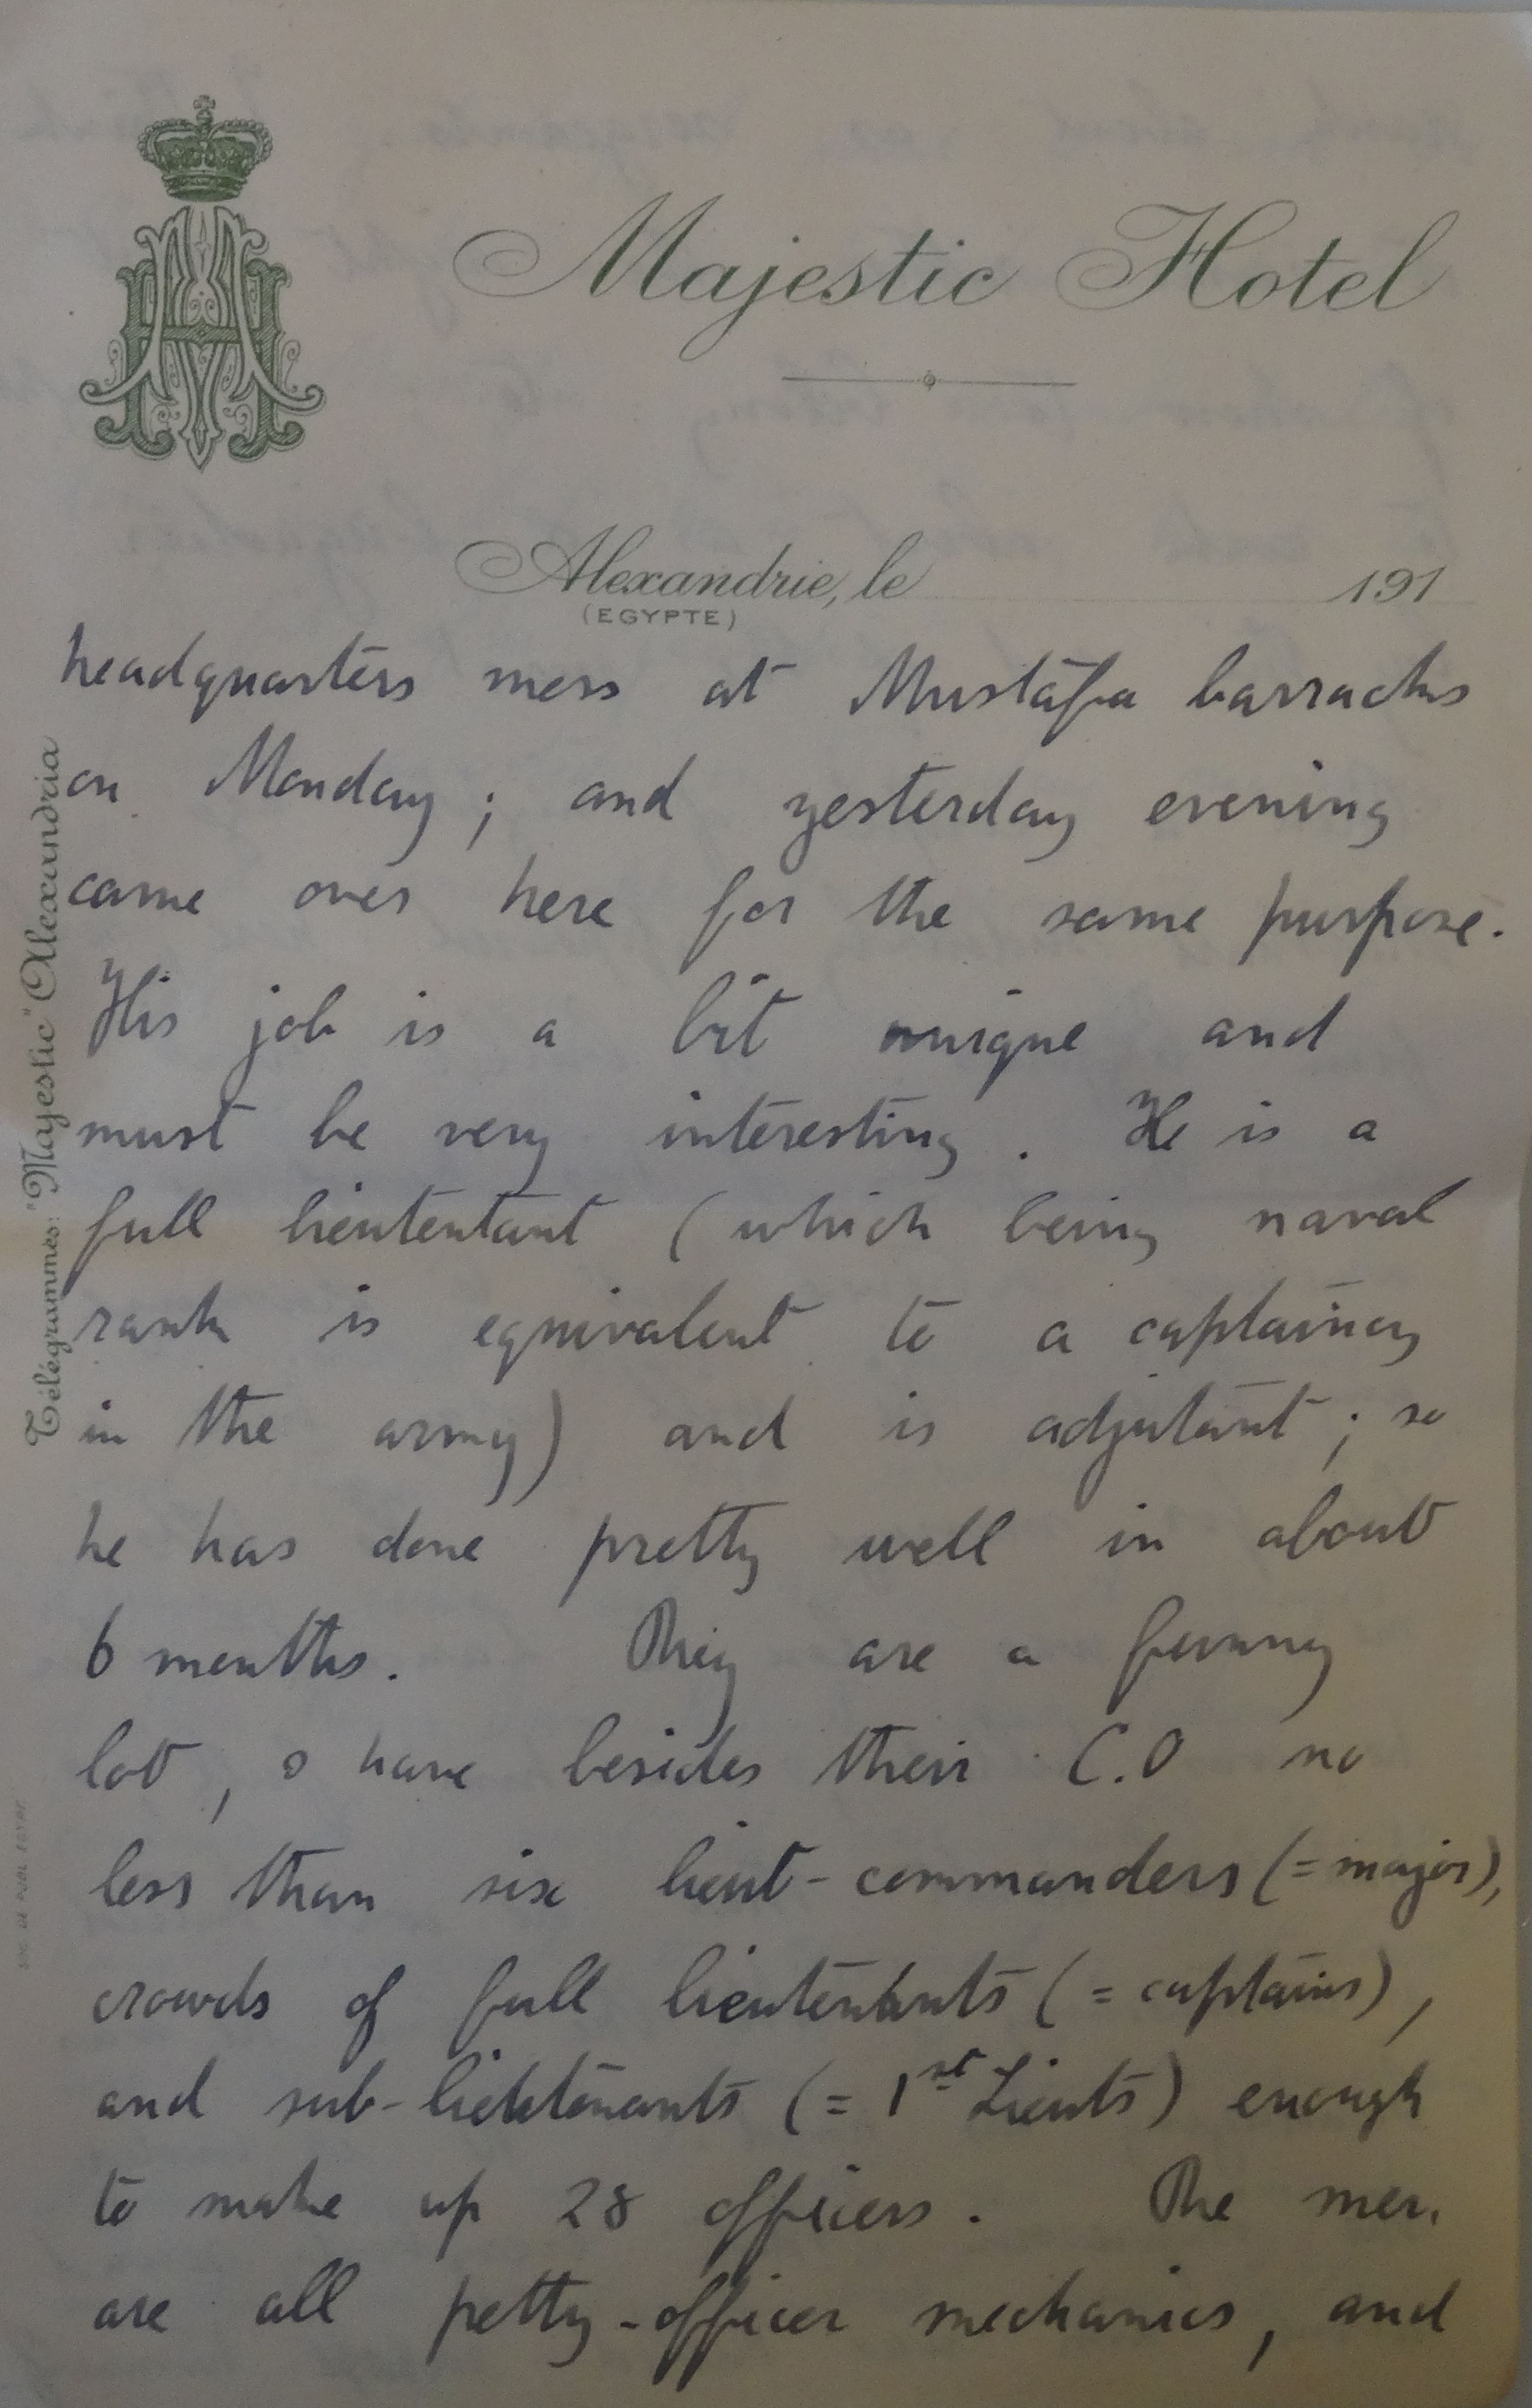 Majestic Hotel
Alexandrie, le 191
(EGYPTE)
Télégrammes: "Majestic" Alexandria
headquarters mess at Mustafa barracks
on Monday; and yesterday evening
came over here for the same purpose.
His job is a bit unique and
must be very interesting. He is a
full lieutentant (which being naval
rank is equivalent to a captaincy
in the army) and is adjutant; so
he has done pretty well in about
6 months. They are a funny
lot, & have besides their C.O no
less than six lieut-commanders (= major),
crowds of full lieutentants (= captains),
and sub-lieutenants (= 1st Lieuts) enough
to make up 28 officers. The men
are all petty-officer mechanics, and